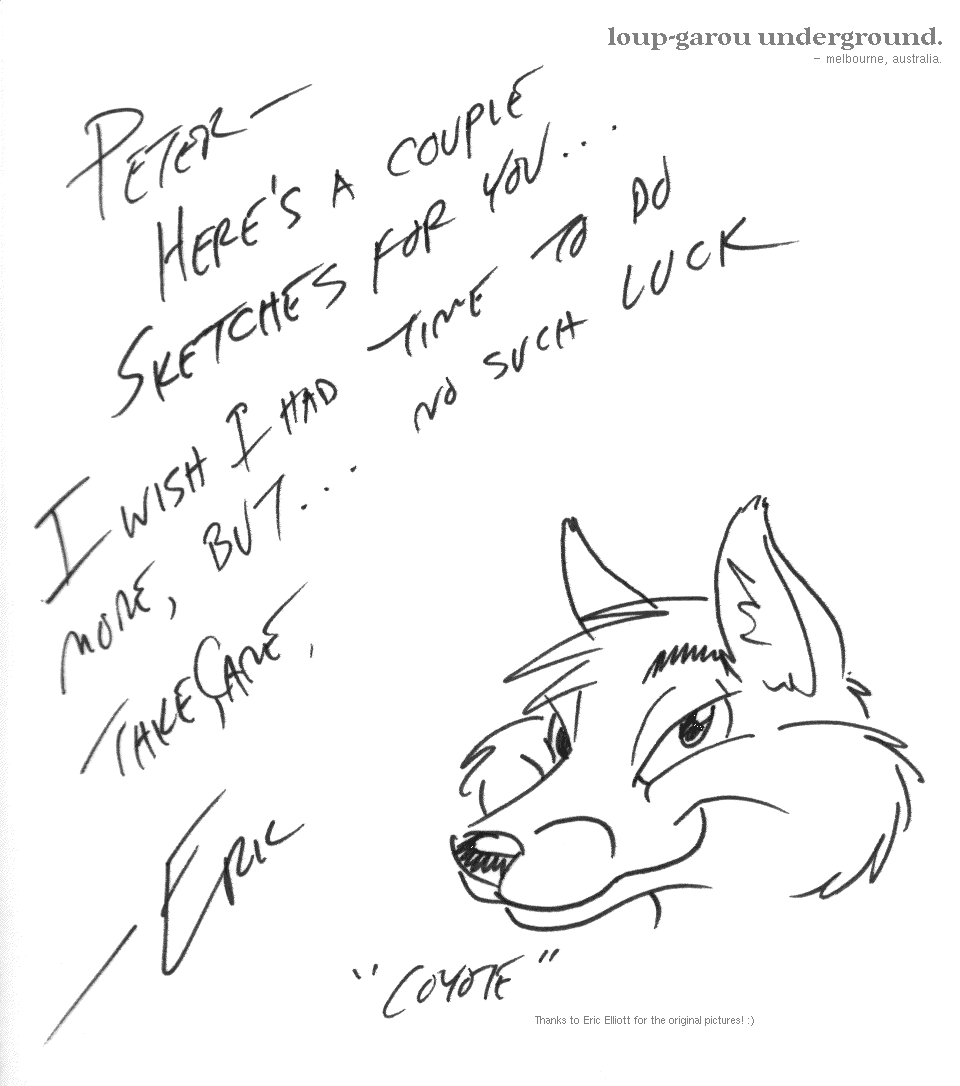 loup-garou underground.
– melbourne, australia.
PETER—
HERE'S A COUPLE
SKETCHES FOR YOU...
I WISH I HAD TIME TO DO
MORE, BUT... NO SUCH LUCK
TAKE CARE,
—ERIC
"COYOTE"
Thanks to Eric Elliott for the original pictures! :)